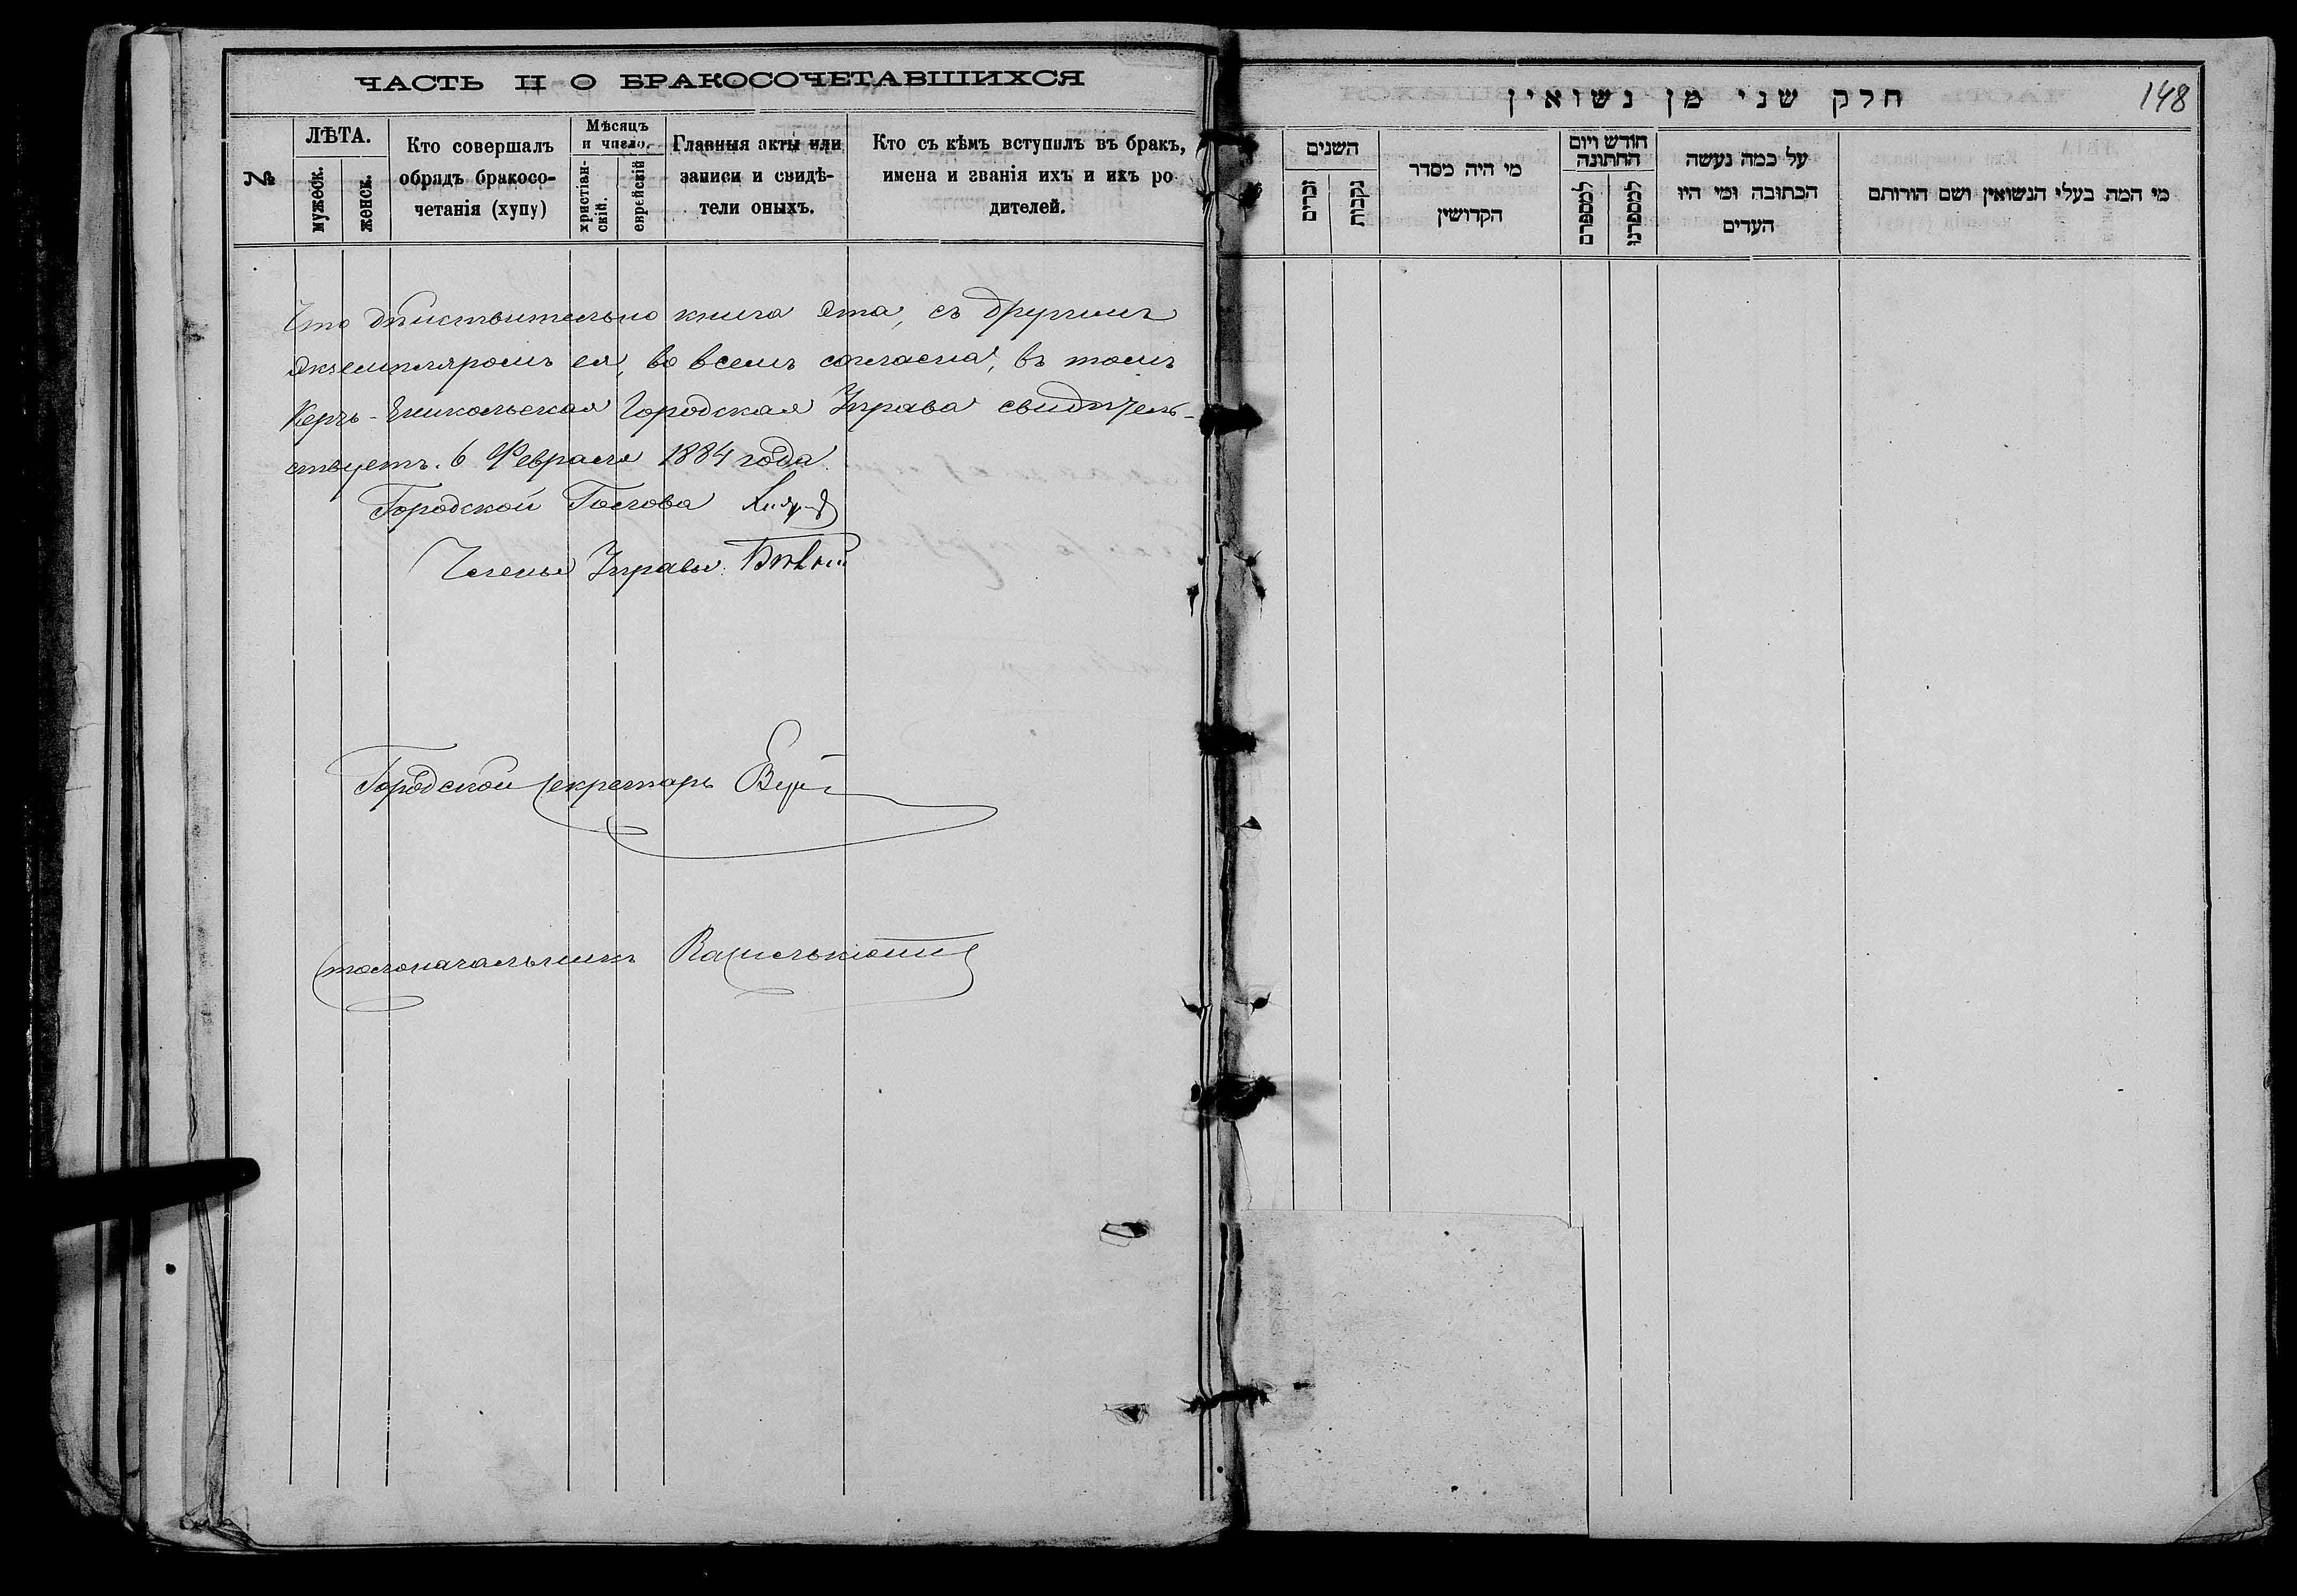 ЧАСТЬ II О БРАКОСОЧЕТАВШИХСЯ
№
ЛѢТА.
мужеск.
женск.
Кто совершалъ
обрядъ бракосо-
четанія (хупу)
Мѣсяцъ
и число.
христіан-
скій.
еврейскій
Главныя акты или
записи и свидѣ-
тели оныхъ.
Кто съ кѣмъ вступилъ въ бракъ,
имена и званія ихъ и ихъ ро
дителей.
Что дѣйствительно книга эта, съ другимъ
экземпляромъ ея, во всемъ согласна, въ томъ
Керчь-Еникольская Городская Управа свидѣтель-
ствуетъ. 6 Февраля 1884 года.
Городской Голова
Члены Управы
Городской Секретарь
Столоначальникъ
148
חלק שני מן נשואין
השנים
זכרים
נקבות
מי היה מסדר
הקדושין
חודש ויום
החתונה
למספרם
למספרנו
על כמה נעשה
הכתובה ומי היו
העדים
מי המה בעלי הנשואין ושם הורותם